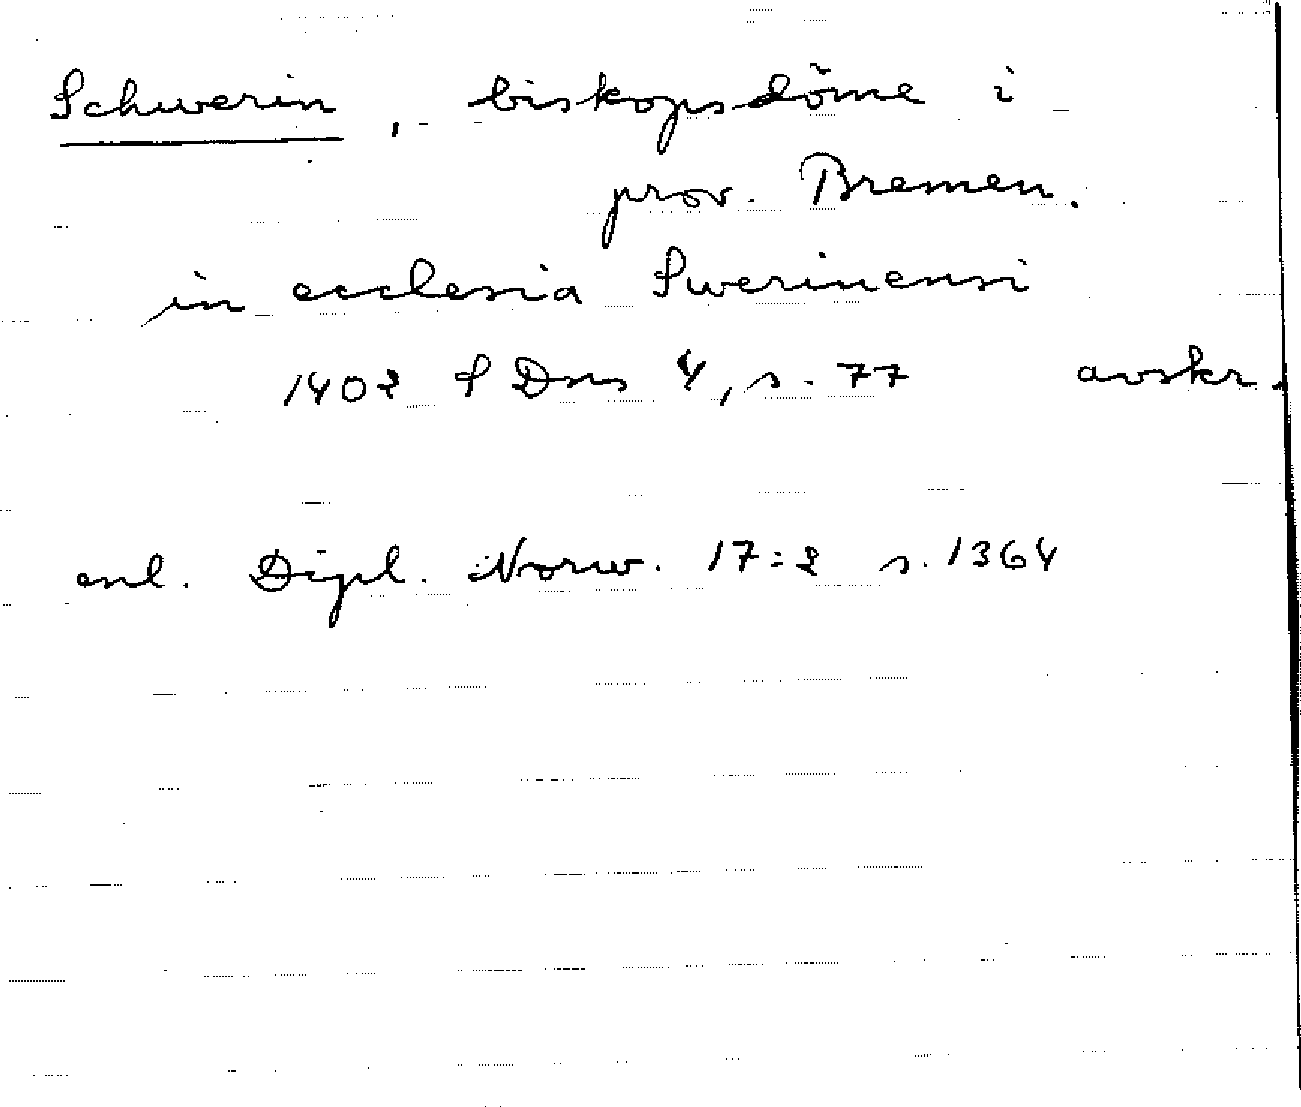 Schwerin, biskopsdöme i
prov. Bremen.
in ecclesia Swerinensi
1402 SDns 4, s. 77 avskr.
enl. Dipl. Norw. 17:2 s. 1364